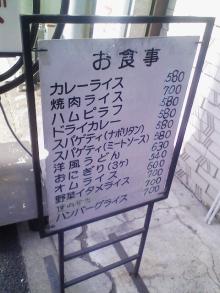 お食事
カレーライス 580
焼肉ライス 700
ハムピラフ 580
ドライカレー 580
スパゲティ(ナポリタン) 580
スパゲティ(ミートソース) 630
洋風うどん 540
おにぎり(3ケ) 600
オムライス 700
野菜イタメライス 700
ハンバーグライス 700